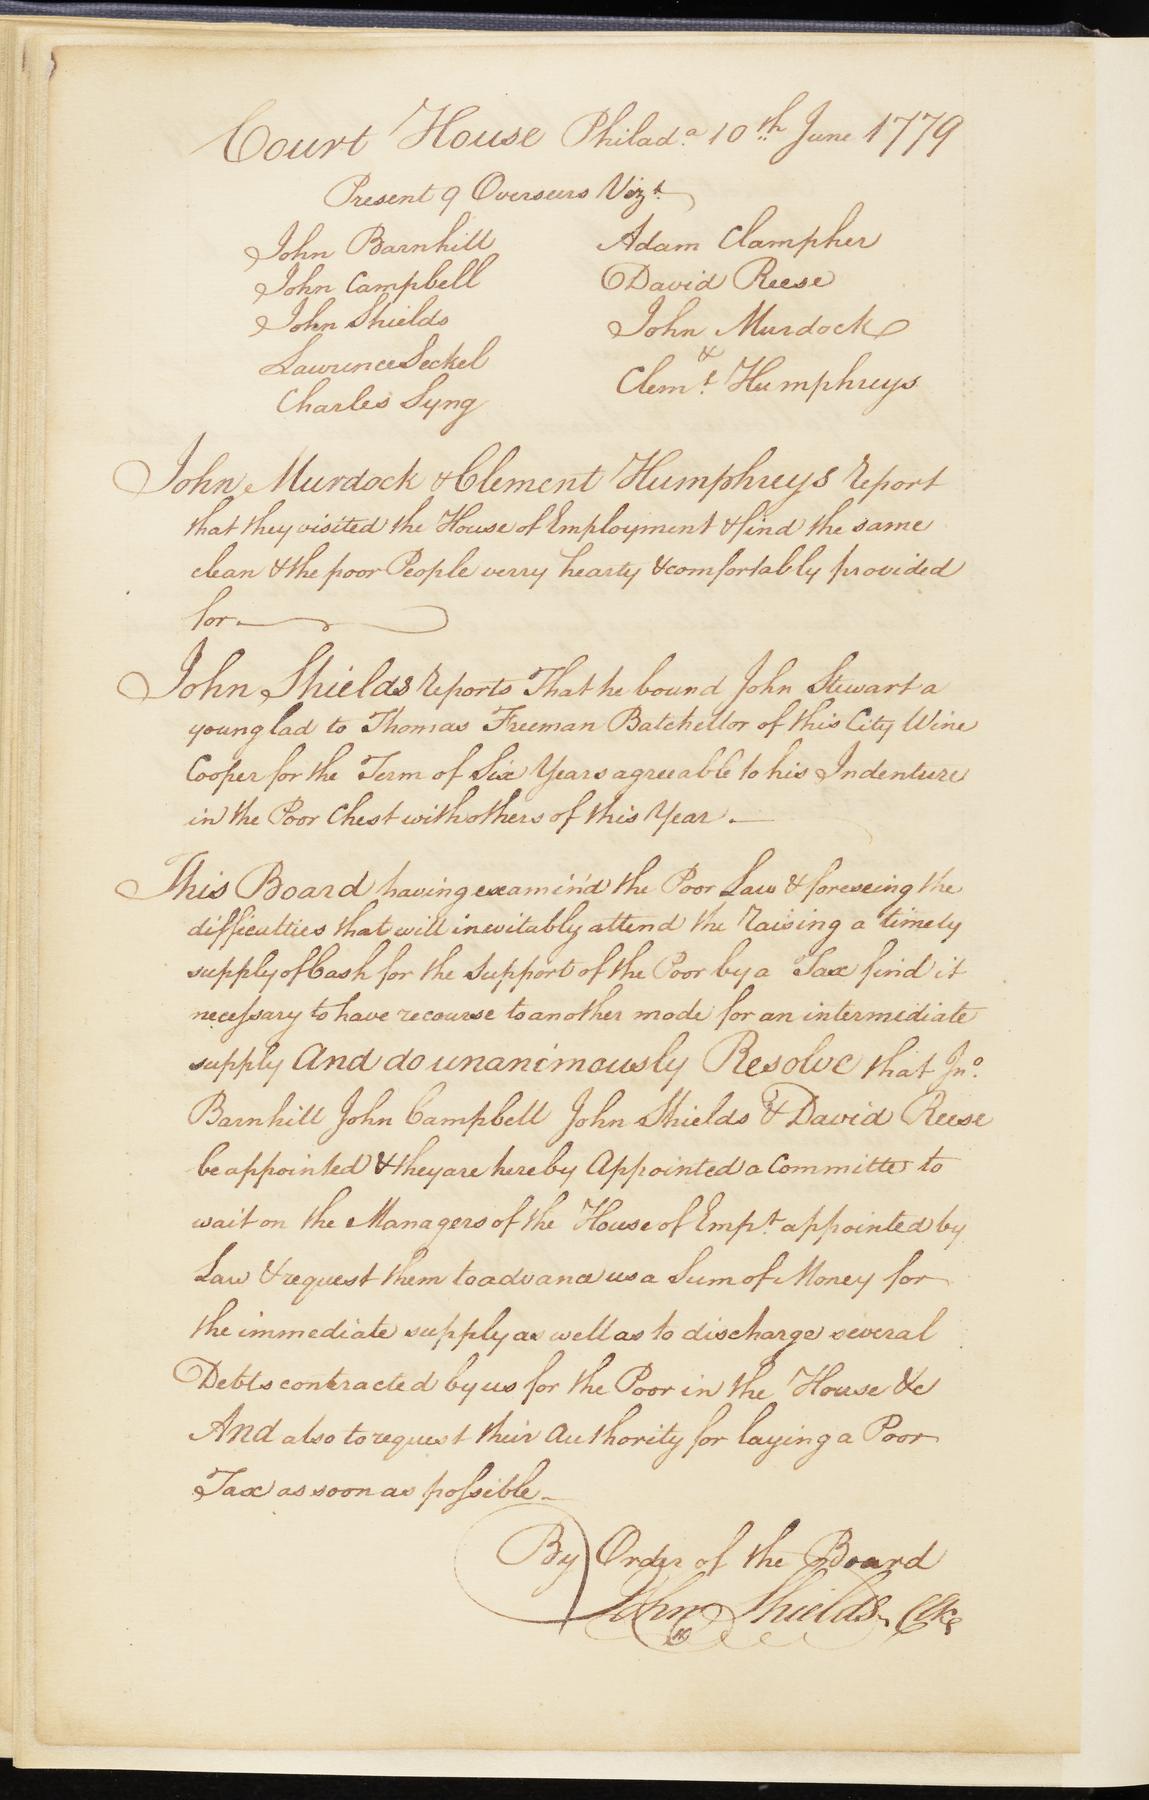 Court House Philad.a 10th June 1779
Present 9 Overseers Vizt.
John Barnhill
John Campbell
John Shields
Lawrence Seckel
Charles Syng
Adam Clampher
David Reese
John Murdock
&
Clemt. Humphreys
John Murdock & Clement Humphreys report
that they visited the House of Employment & find the same
clean & the poor People verry hearty & comfortably provided
for
John Shields reports That he bound John Stewart a
young lad to Thomas Freeman Batchellor of this City Wine
Cooper for the Term of Six Years agreeable to his Indenture
in the Poor Chest with others of this Year.
This Board having examin'd the Poor Law & foreseing the
difficulties that will inevitably attend the raising a timely
supply of Cash for the support of the Poor by a Tax find it
necessary to have recourse to another mode for an intermediate
supply And do unanimously Resolve that Jno.
Barnhill John Campbell John Shields & David Reese
be appointed & they are hereby Appointed a Committe to
wait on the Managers of the House of Empt. appointed by
Law & request them to advance us a Sum of Money for
the immediate supply as well as to discharge several
Debts contracted by us for the Poor in the House &c
And also to request their Authority for laying a Poor
Tax as soon as possible
By Order of the Board
John Shields Clk